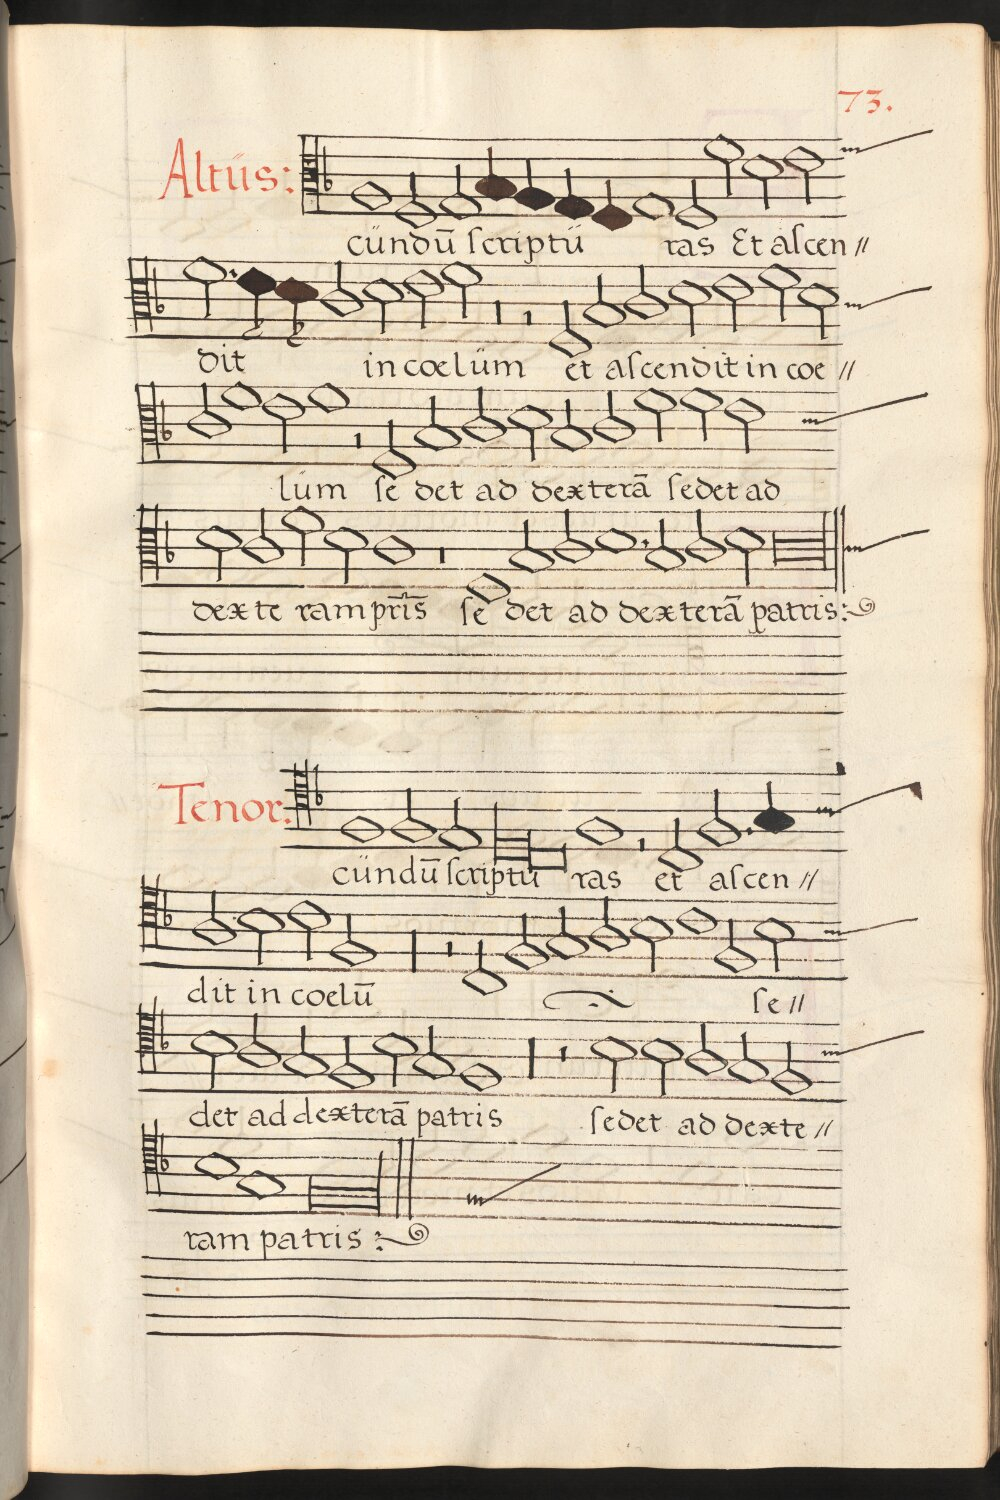 73.
Altüs:
cündū scriptü ras Et ascen //
dit in coelüm et ascendit in coe //
lüm se det ad dexterā sedet ad
dexte ram pr̄is se det ad dexterā patris:
Tenor:
cündū scriptü ras et ascen //
dit in coelū se //
det ad dexterā patris sedet ad dexte //
ram patris :